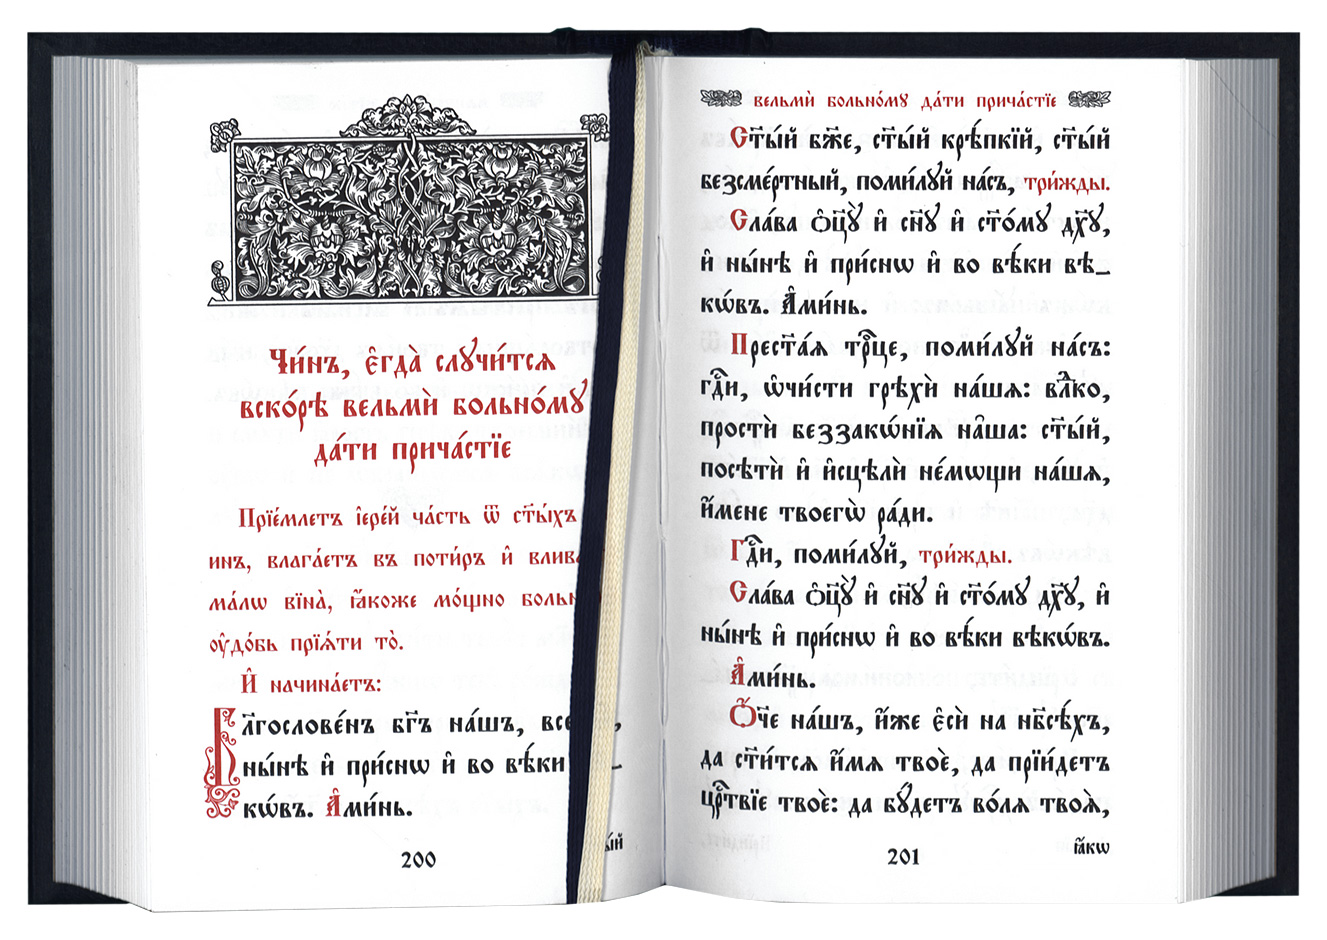 Чи́нъ, є҆гда̀ слꙋчи́тсѧ
вско́рѣ вельмѝ больно́мꙋ
да́ти прича́стїе
Прїе́млетъ і҆ере́й ча́сть ѿ ст҃ы́хъ
инъ, влага́етъ въ поти́ръ и҆
ма́лѡ вїна̀, ꙗ҆́коже мо́щно
ᲂу҆до́бь прїѧ́ти то̀.
И҆ начина́етъ:
Бл҃гослове́нъ бг҃ъ на́шъ,
ны́нѣ и҆ при́снѡ и҆ во вѣ́ки
кѡ́въ. А҆ми́нь.
200
вельмѝ больно́мꙋ да́ти прича́стїе
Ст҃ы́й бж҃е, ст҃ы́й крѣ́пкїй, ст҃ы́й
безсме́ртный, поми́лꙋй на́съ, три́жды.
Сла́ва ѻ҆ц҃ꙋ̀ и҆ сн҃ꙋ и҆ ст҃о́мꙋ дх҃ꙋ,
и҆ ны́нѣ и҆ при́снѡ и҆ во вѣ́ки вѣ_
кѡ́въ. А҆ми́нь.
Прест҃а́ѧ трⷪ҇це, поми́лꙋй на́съ:
гдⷭ҇и, ѡ҆чи́сти грѣхѝ на́шѧ: влⷣко,
простѝ беззакѡ́нїѧ на̑ша: ст҃ы́й,
посѣтѝ и҆ и҆сцѣлѝ не́мѡщи на́шѧ,
и҆́мене твоегѡ̀ ра́ди.
Гдⷭ҇и, поми́лꙋй, три́жды.
Сла́ва ѻ҆ц҃ꙋ̀ и҆ сн҃ꙋ и҆ ст҃о́мꙋ дх҃ꙋ, и҆
ны́нѣ и҆ при́снѡ и҆ во вѣ́ки вѣкѡ́въ.
А҆ми́нь.
Ѻ҆́ч҃е на́шъ, и҆́же є҆сѝ на нб҃сѣ́хъ,
да ст҃и́тсѧ и҆́мѧ твоѐ, да прїи́детъ
црⷭ҇твїе твоѐ: да бꙋ́детъ во́лѧ твоѧ̀,
ꙗ҆́кѡ
201